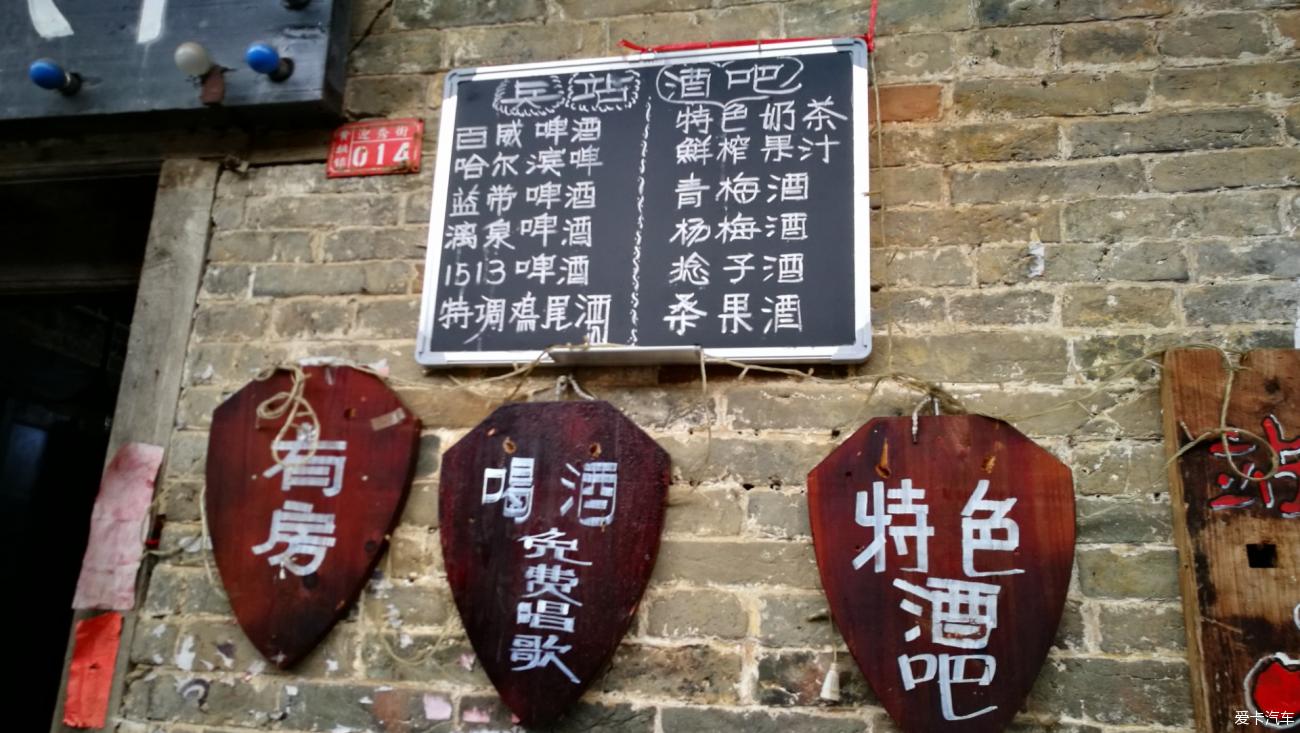 兵站 酒吧
百威啤酒
哈尔滨啤
蓝带啤酒
漓泉啤酒
1513啤酒
特调鸡尾酒
特色奶茶
鮮榨果汁
青梅酒
杨梅酒
捻子酒
桑果酒
黄姚镇
迎秀街
014
有房
喝酒
免费唱歌
特色
酒吧
站
爱卡汽车